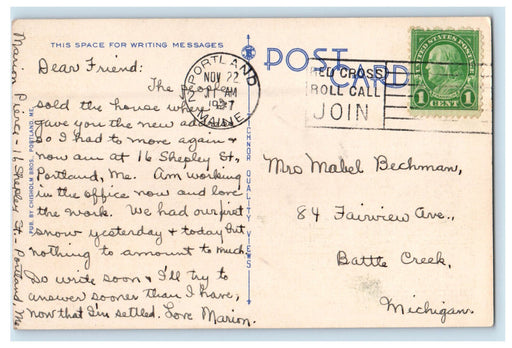 THIS SPACE FOR WRITING MESSAGES
POST CARD
Dear Friend:
The people
sold the house where I
gave you the new address
so I had to move again &
now am at 16 Shepley St.,
Portland, Me. Am working
in the office now and love
the work. We had our first
snow yesterday & today but
nothing to amount to much.
Do write soon & I'll try to
answer sooner than I have,
now that I'm settled. Love Marion.
Marion Pierce - 16 Shepley St - Portland, Me.
PUB. BY CHISHOLM BROS., PORTLAND, ME.
PORTLAND
NOV 22
11 AM
MAINE
RED CROSS
ROLL CALL
JOIN
UNITED STATES POSTAGE
1 CENT 1
Mrs Mabel Bechman,
84 Fairview Ave.,
Battle Creek,
Michigan.